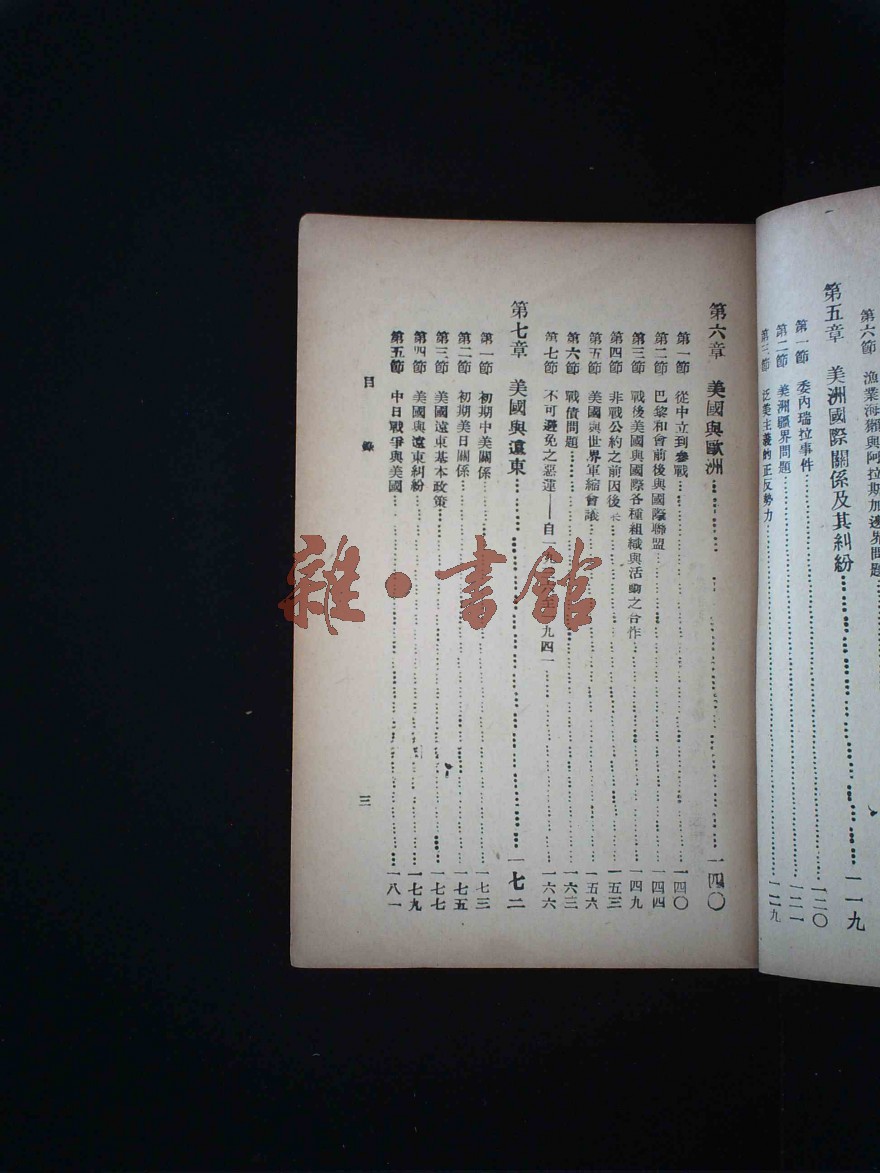 第六節 漁業海獺與阿拉斯加邊界問題
第五章 美洲國際關係及其糾紛 一一九
第一節 委內瑞拉事件 一二〇
第二節 美洲疆界問題 一二一
第三節 泛美主義的正反勢力 一二九
第六章 美國與歐洲 一四〇
第一節 從中立到參戰 一四〇
第二節 巴黎和會前後與國際聯盟 一四四
第三節 戰後美國與國際各種組織與活動之合作 一四九
第四節 非戰公約之前因後 一五三
第五節 美國與世界軍縮會議 一五六
第六節 戰債問題 一六三
第七節 不可避免之惡運——自一九 九四一 一六六
第七章 美國與遠東 一七二
第一節 初期中美關係 一七三
第二節 初期美日關係 一七五
第三節 美國遠東基本政策 一七七
第四節 美國與遠東糾紛 一七九
第五節 中日戰爭與美國 一八一
目錄
三
雜·書館